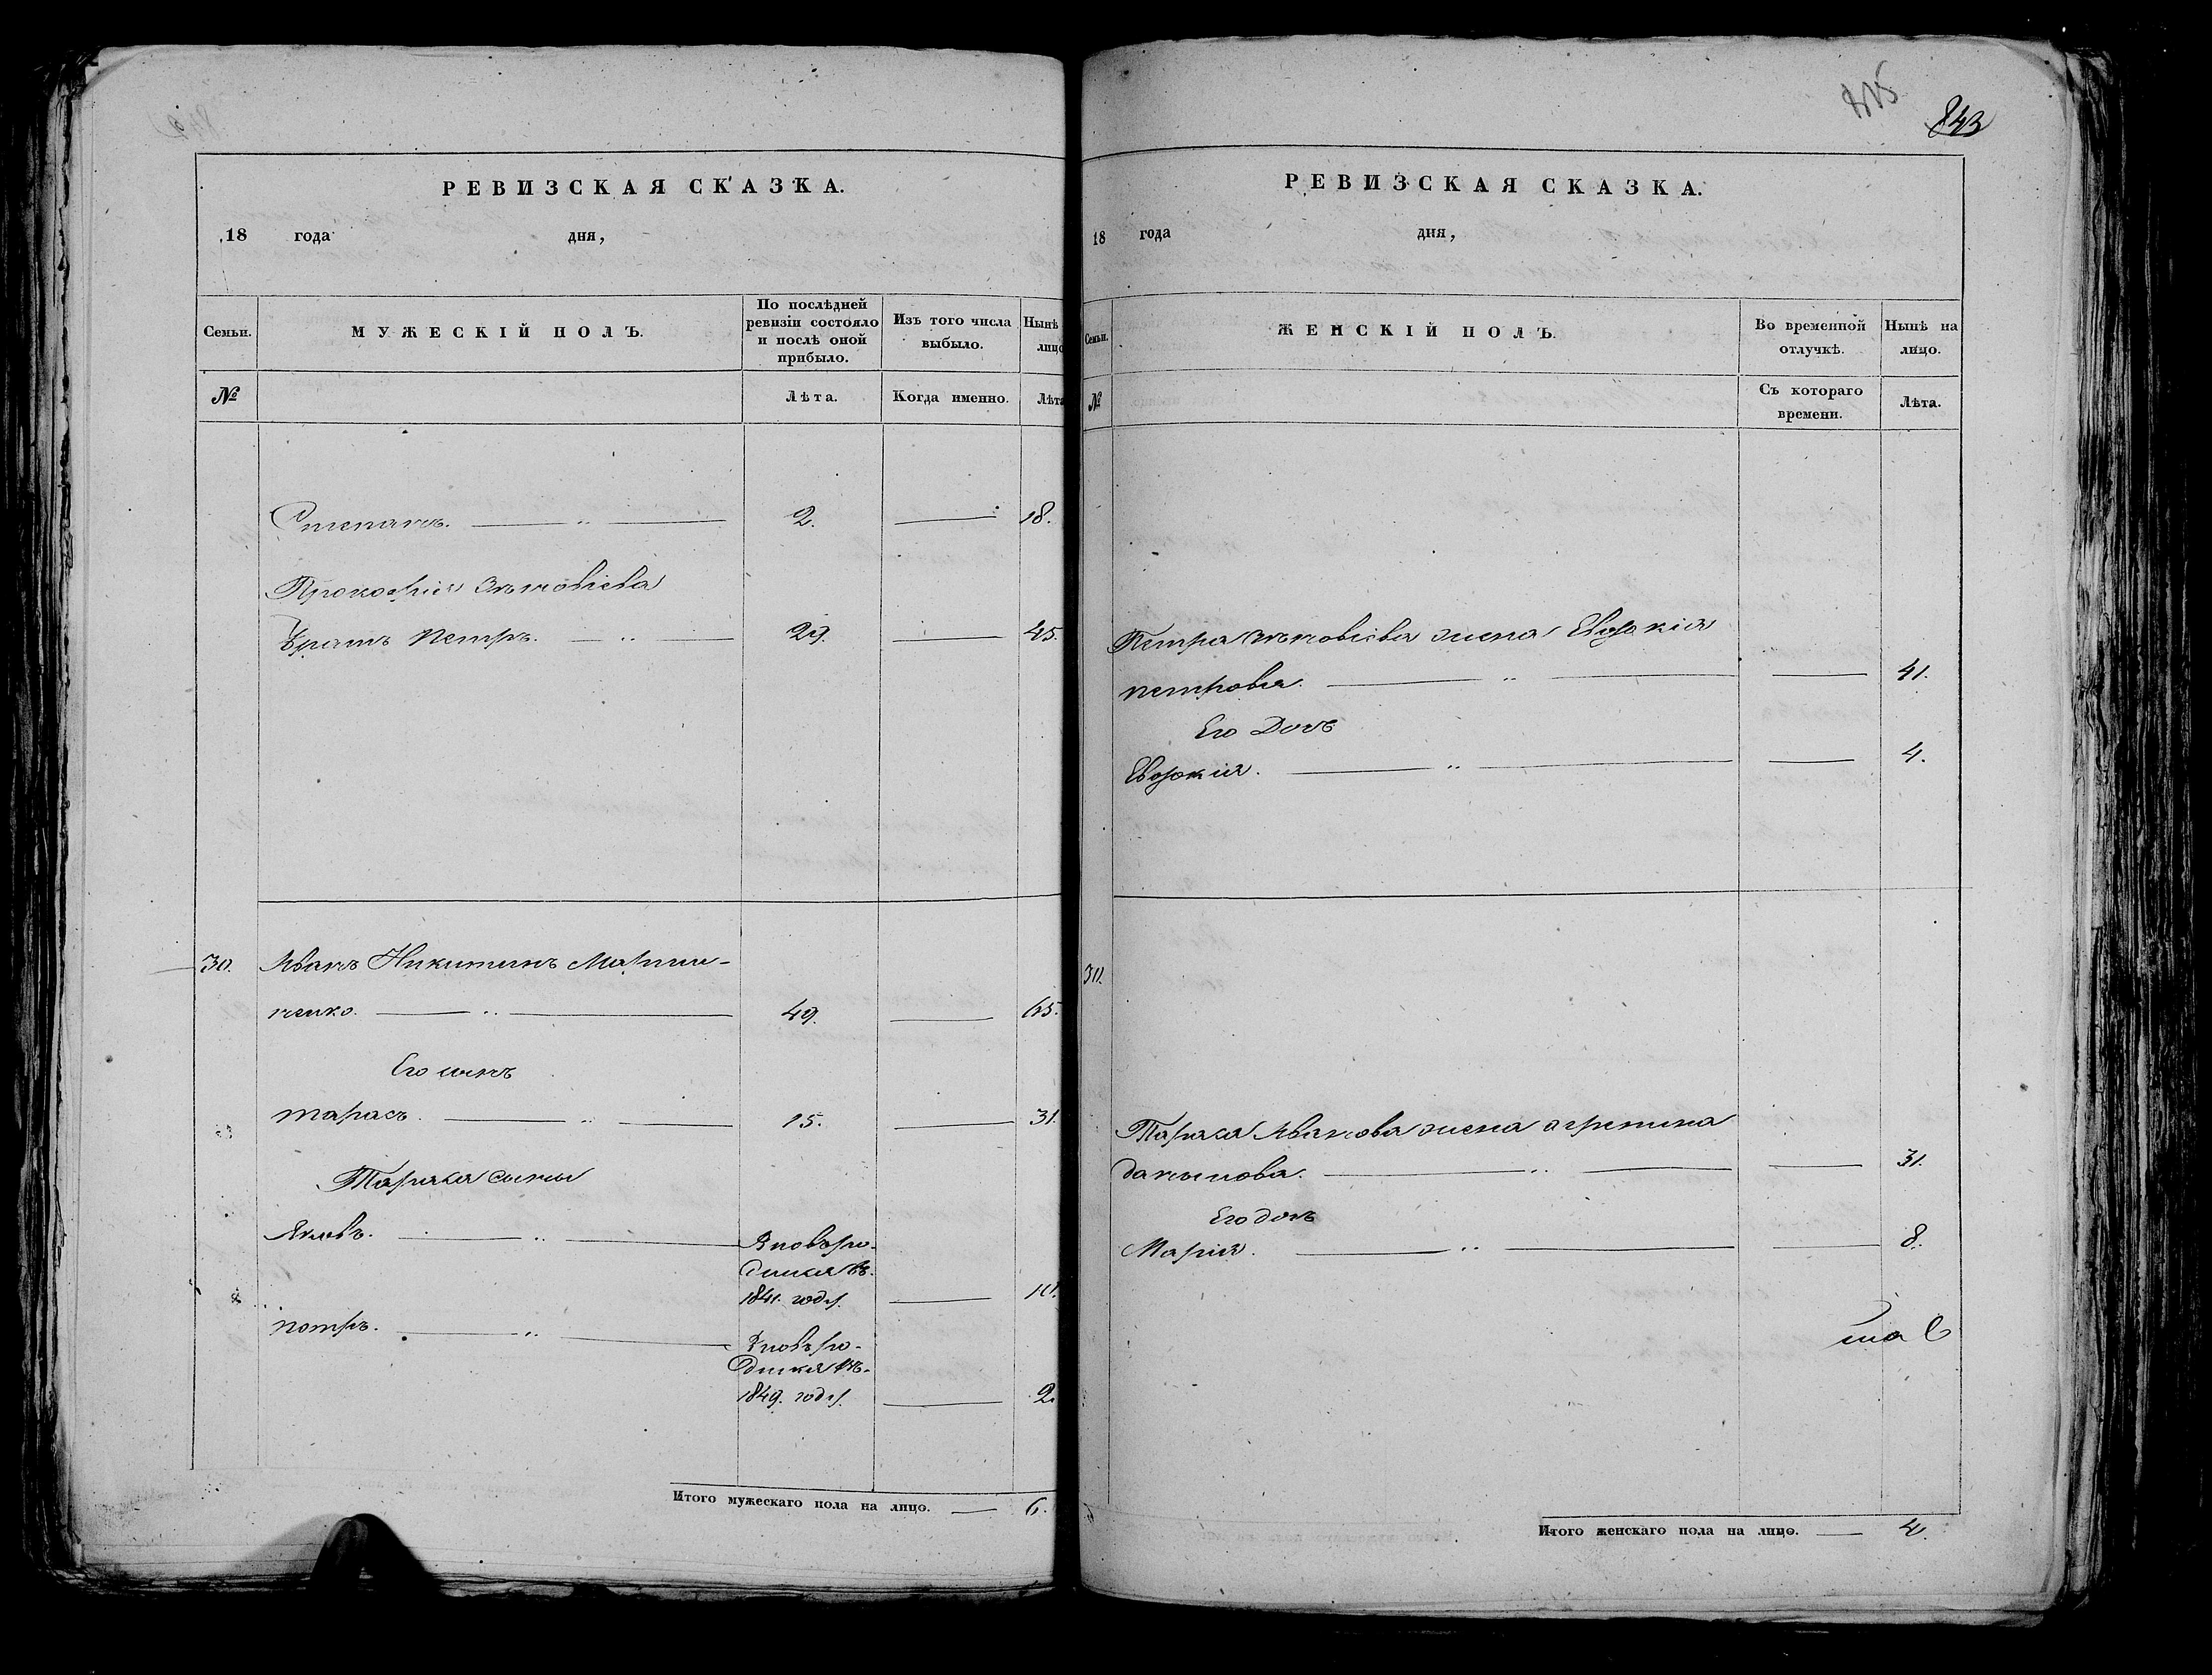 843
РЕВИЗСКАЯ СКАЗКА.
18 года дня,
Семьи. МУЖЕСКІЙ ПОЛЪ. По послѣдней ревизіи состояло и послѣ оной прибыло. Изъ того числа выбыло. Нынѣ лицо
№ Лѣта. Когда именно. Лѣта
Степанъ. — „ — 2. — 18.
Прокофія Зѣновіева
братъ Петръ. — „ — 29. — 45.
30. Иванъ Никитинъ Марти-
ненко. — „ — 49. — 65.
Его сынъ
Тарасъ. — „ — 15. — 31.
Тараса сыны
Яковъ. — „ — Вновь ро-
дился въ
1841. году. — 10.
Петръ. — „ — Вновь ро-
дился въ
1849. году. — 2.
Итого мужескаго пола на лицо. — 6.
РЕВИЗСКАЯ СКАЗКА.
18 года дня,
Семьи. ЖЕНСКІЙ ПОЛЪ. Во временной отлучкѣ. Нынѣ на лицо.
№ Съ котораго времени. Лѣта.
Петра Зѣновіева жена Евдокія
Петрова. — „ — — 41.
Его Дочь
Евдокія. — „ — — 4.
30.
Тараса Иванова жена Агрепина
— „ — — 31.
Его дочь
Марія. — „ — — 8.
Итого женскаго пола на лицо. — 4.